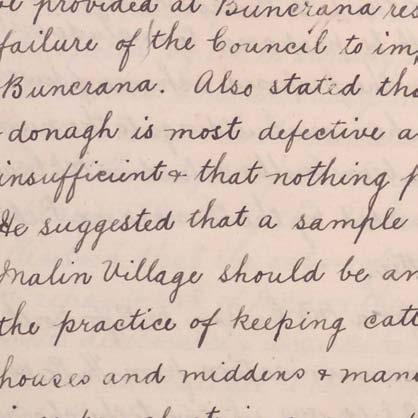 be provided at Buncrana res
failure of the Council to im
Buncrana. Also stated tha
donagh is most defective a
insufficient & that nothing p
He suggested that a sample
Malin Village should be an
the practice of keeping catt
houses and middens & man